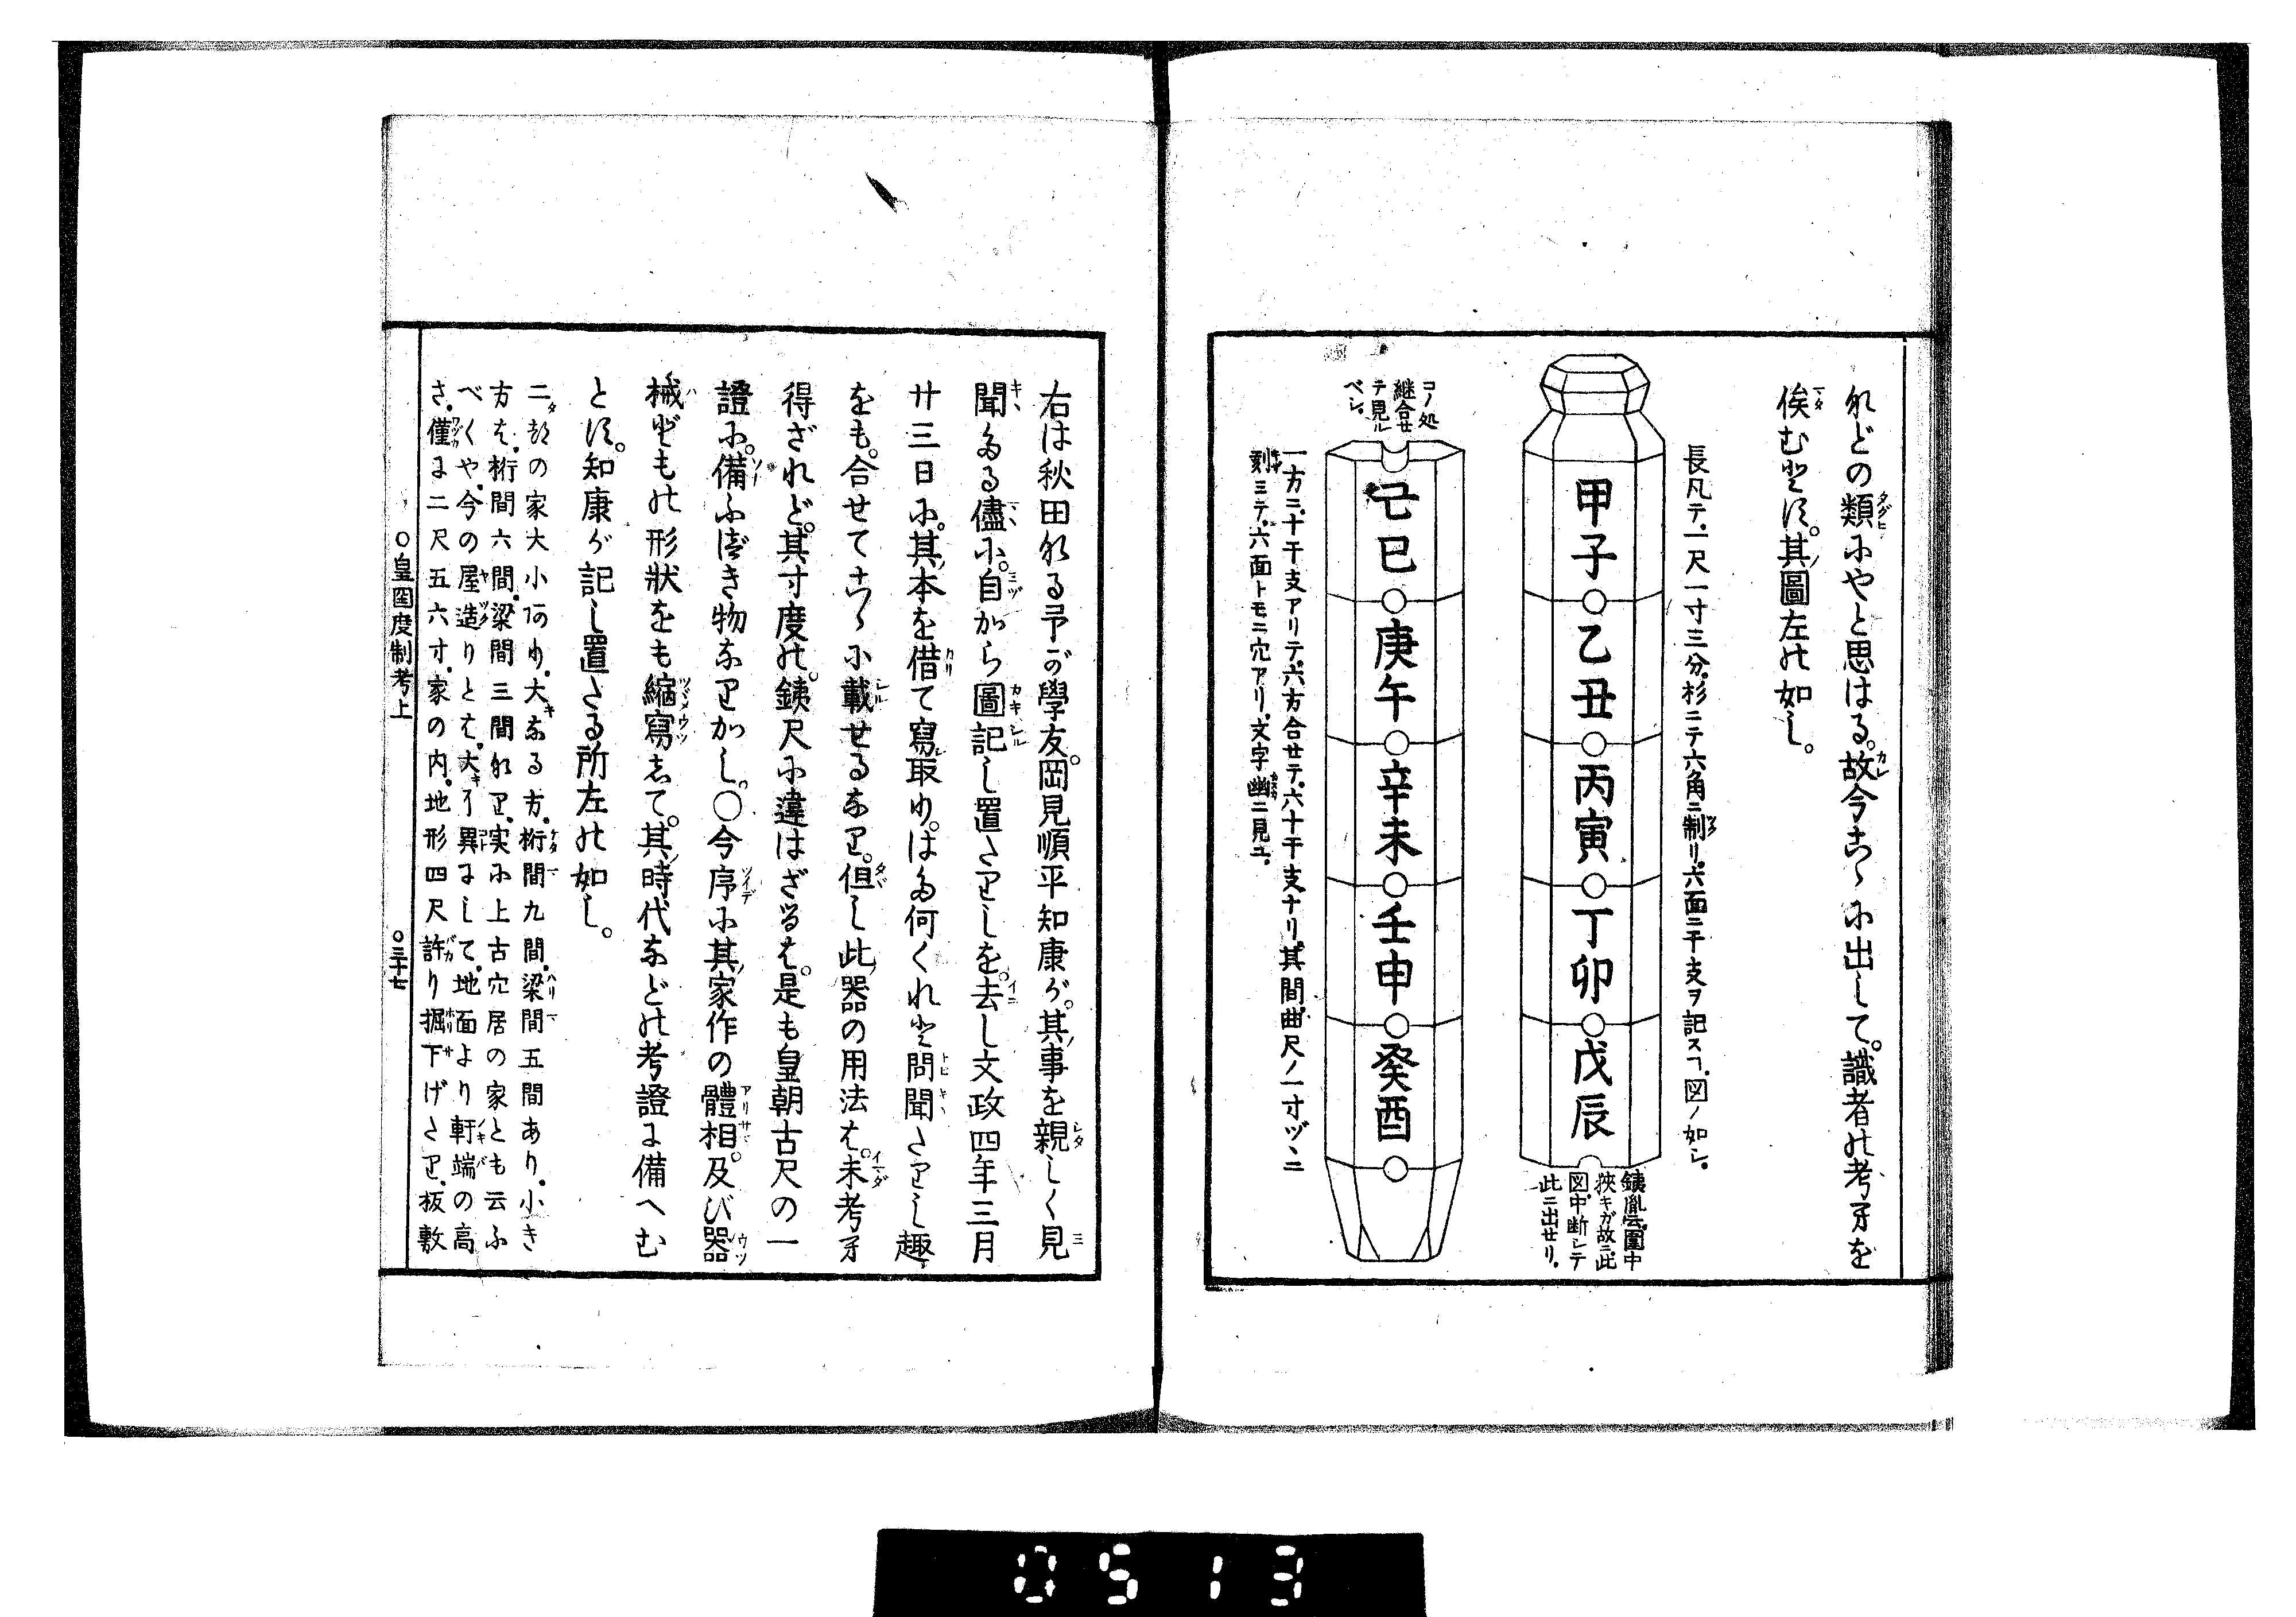 などの類にやと思はる。故今こゝに出して。識者の考牙を
俟むとす。其圖左の如し。
長凡テ。一尺一寸三分。杉ニテ六角ニ制リ。六面ニ干支ヲ記スヿ。図ノ如シ。
甲子○乙丑○丙寅○丁卯○戊辰
銕胤云。圍中
狹キガ故ニ。此
図。中断シテ
此ニ出セリ。
コノ処
継合セ
テ見ル
ベシ。
己巳○庚午○辛未○壬申○癸酉○
一方ニ。十干支アリテ。六方合セテ。六十干支ナリ。其間。曲尺ノ一寸ヅヽニ
刻ミテ。六面トモニ穴アリ。文字幽ニ見ユ。
右は秋田なる予が學友。岡見順平知康が。其事を親しく見
聞たる儘に。自から圖記し置たりしを。去し文政四年三月
廿三日に。其本を借て寫取り。はた何くれと問聞たりし趣
をも。合せてこゝに載せるなり。但し此器の用法は。未考牙
得ざれど。其寸度の。銕尺に違はざるは。是も皇朝古尺の一
證に。備ふべき物なりかし。○今序に其家作の體相。及び器
械どもの形狀をも縮寫して。其時代などの考證に備へむ
とす。知康が記し置たる所左の如し。
二郎の家大小あり。大なる方。桁間九間。梁間五間あり。小き
方は。桁間六間。梁間三間なり。実に上古穴居の家とも云ふ
べくや。今の屋造りとは。大く異にして。地面より軒端の高
さ。僅に二尺五六寸。家の内。地形四尺許り掘下げたり。板敷
○皇国度制考上
○三十七
0513